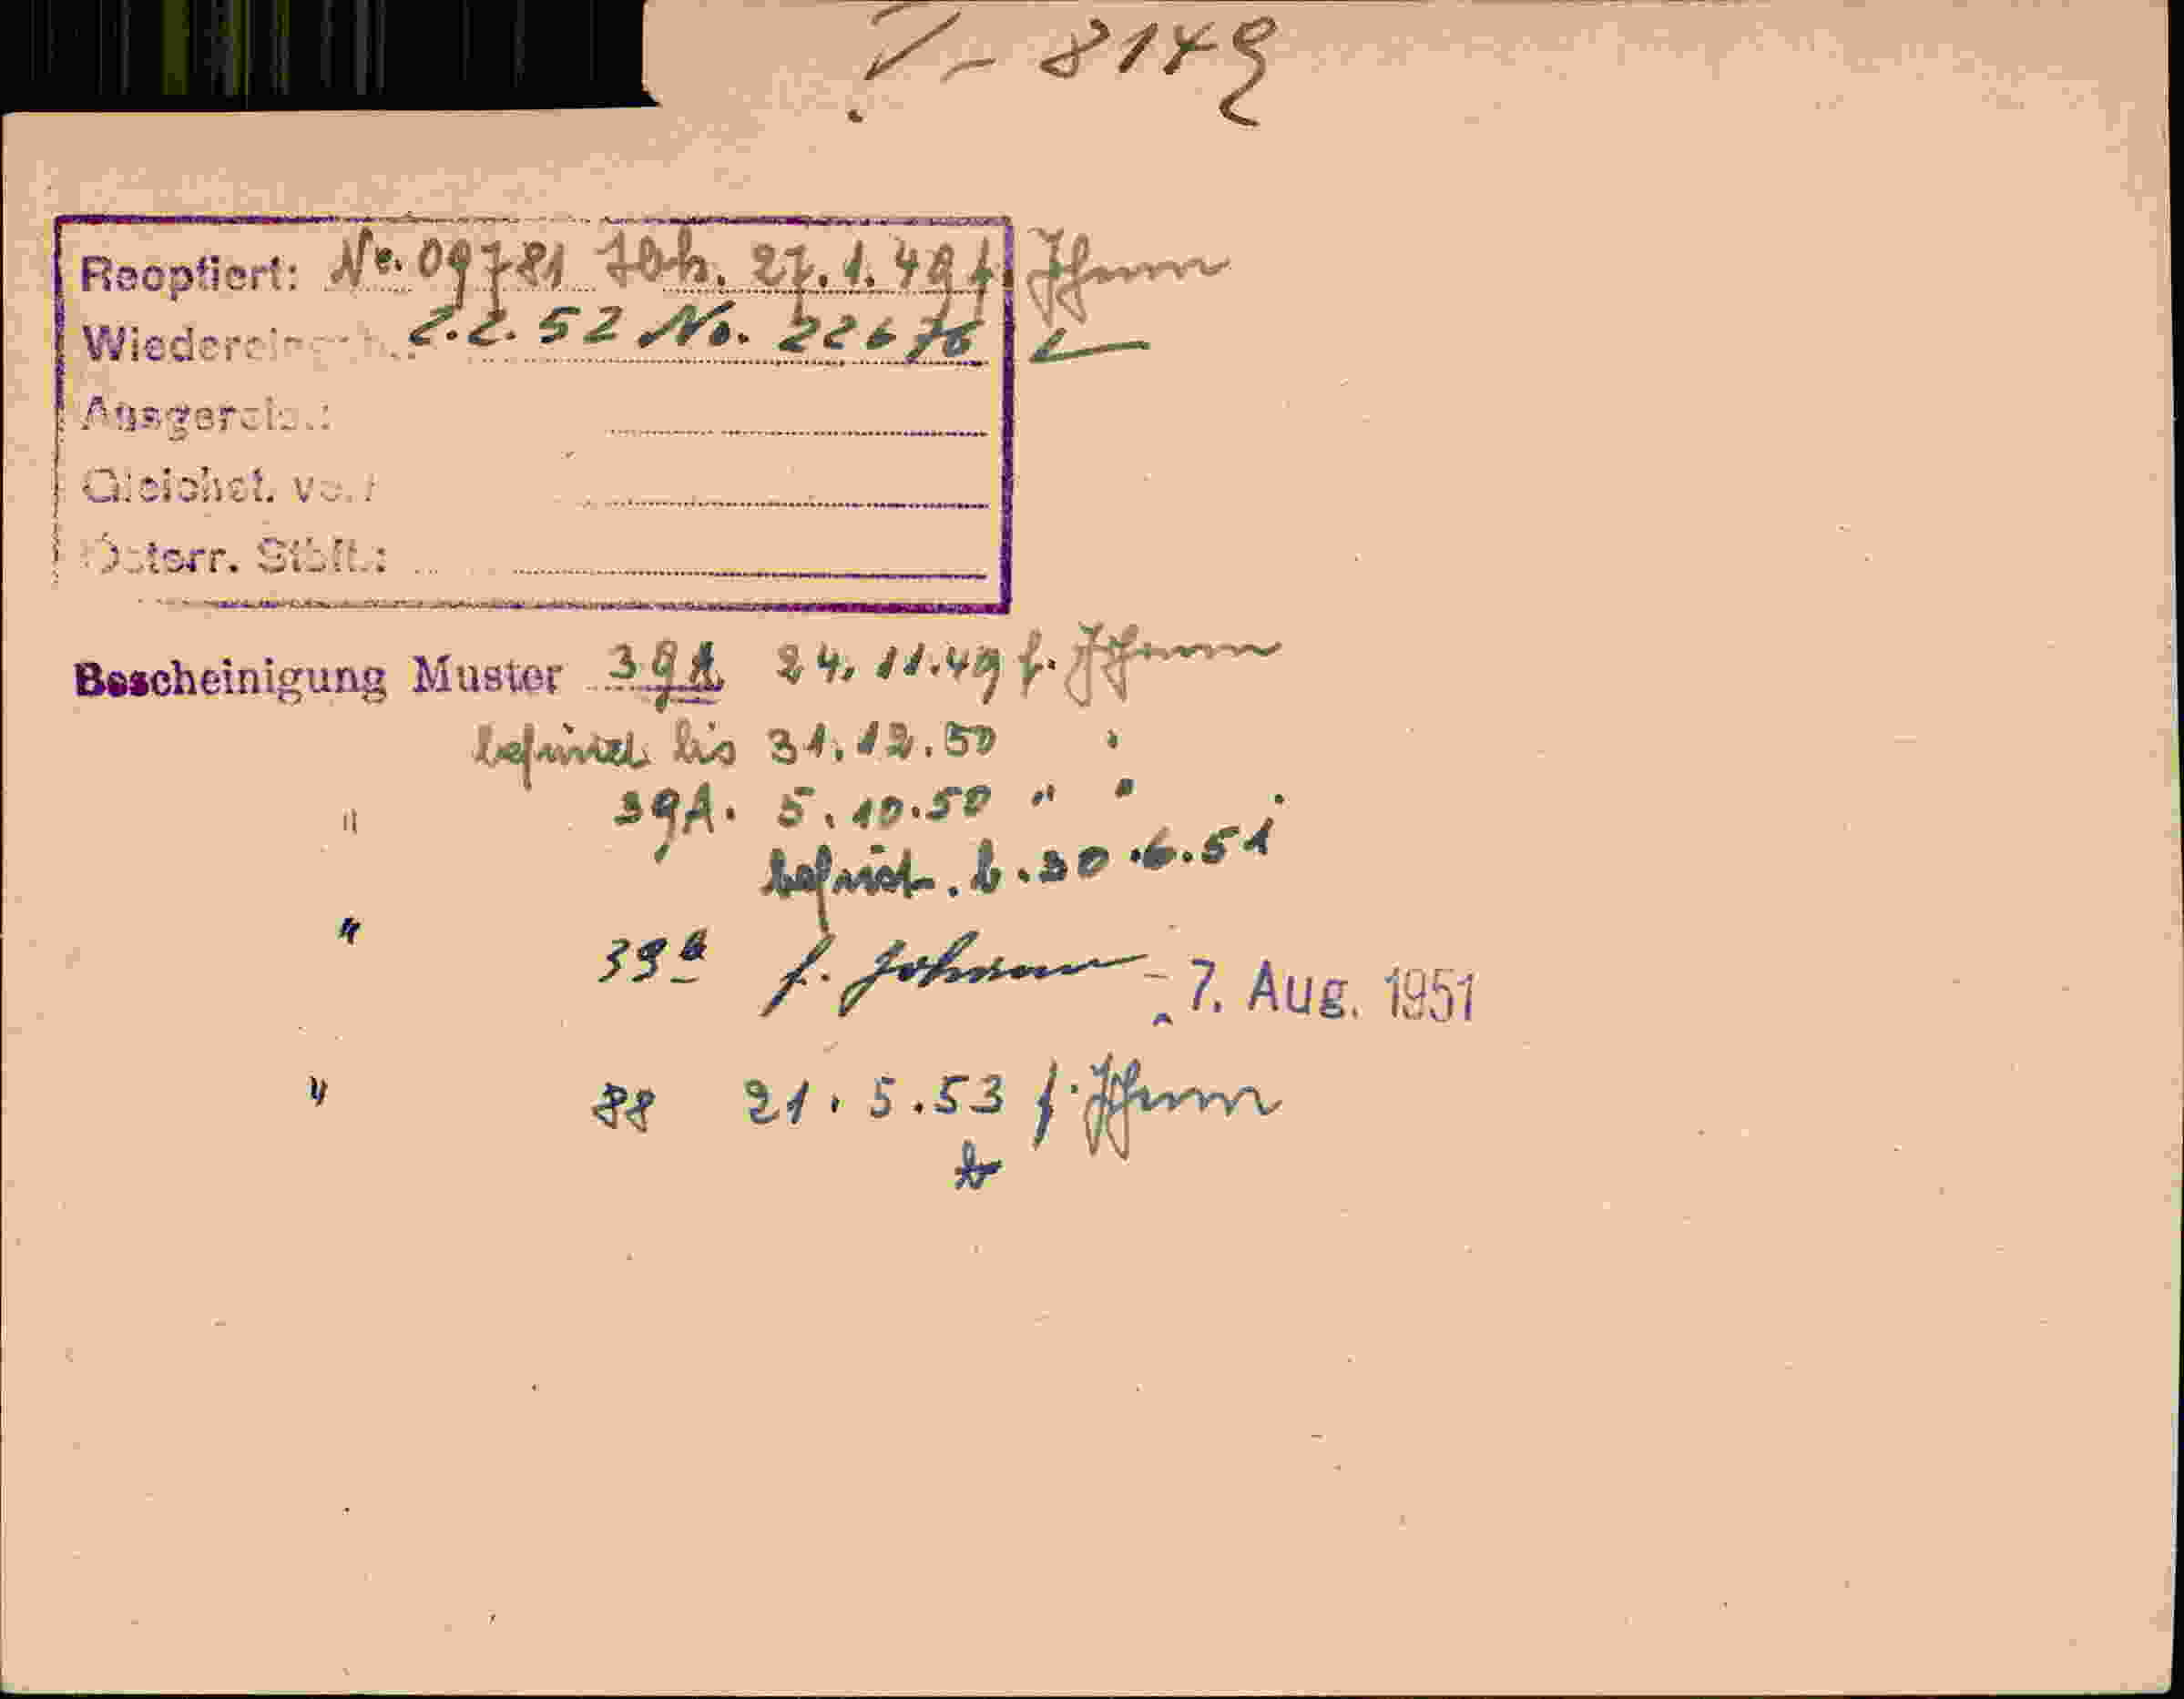 V - 8149
Reoptiert: No. 09781 Joh. 27.1.49 f. Johann
Wiedereingeb.: 2.2.52 No. 22676
Ausgereist:
Gleichst. v.
Österr. Stbft.:
Bescheinigung Muster 39A 24.11.49 f. Johann
befrist. bis 31.12.50 "
" 39A. 5.10.50 " "
befrist. b. 30.6.51
" 39b f. Johann - 7. Aug. 1951
" 88 21.5.53 f. Johann